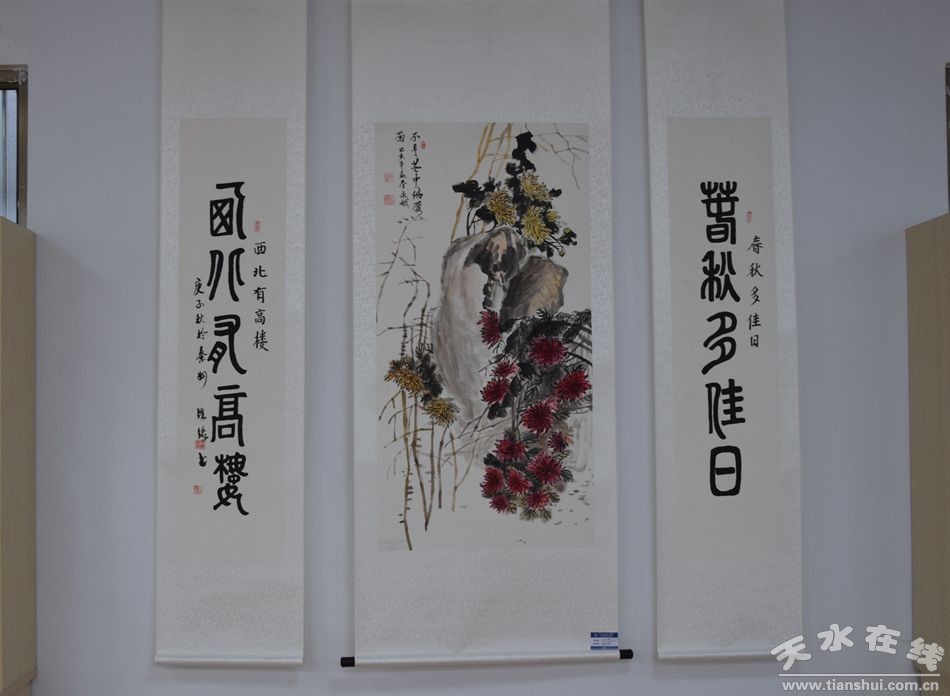 春秋多佳日
春秋多佳日
不是花中偏爱
菊 己亥年
西北有高楼
西北有高樓
庚子秋於秦州
天水在线
www.tianshui.com.cn